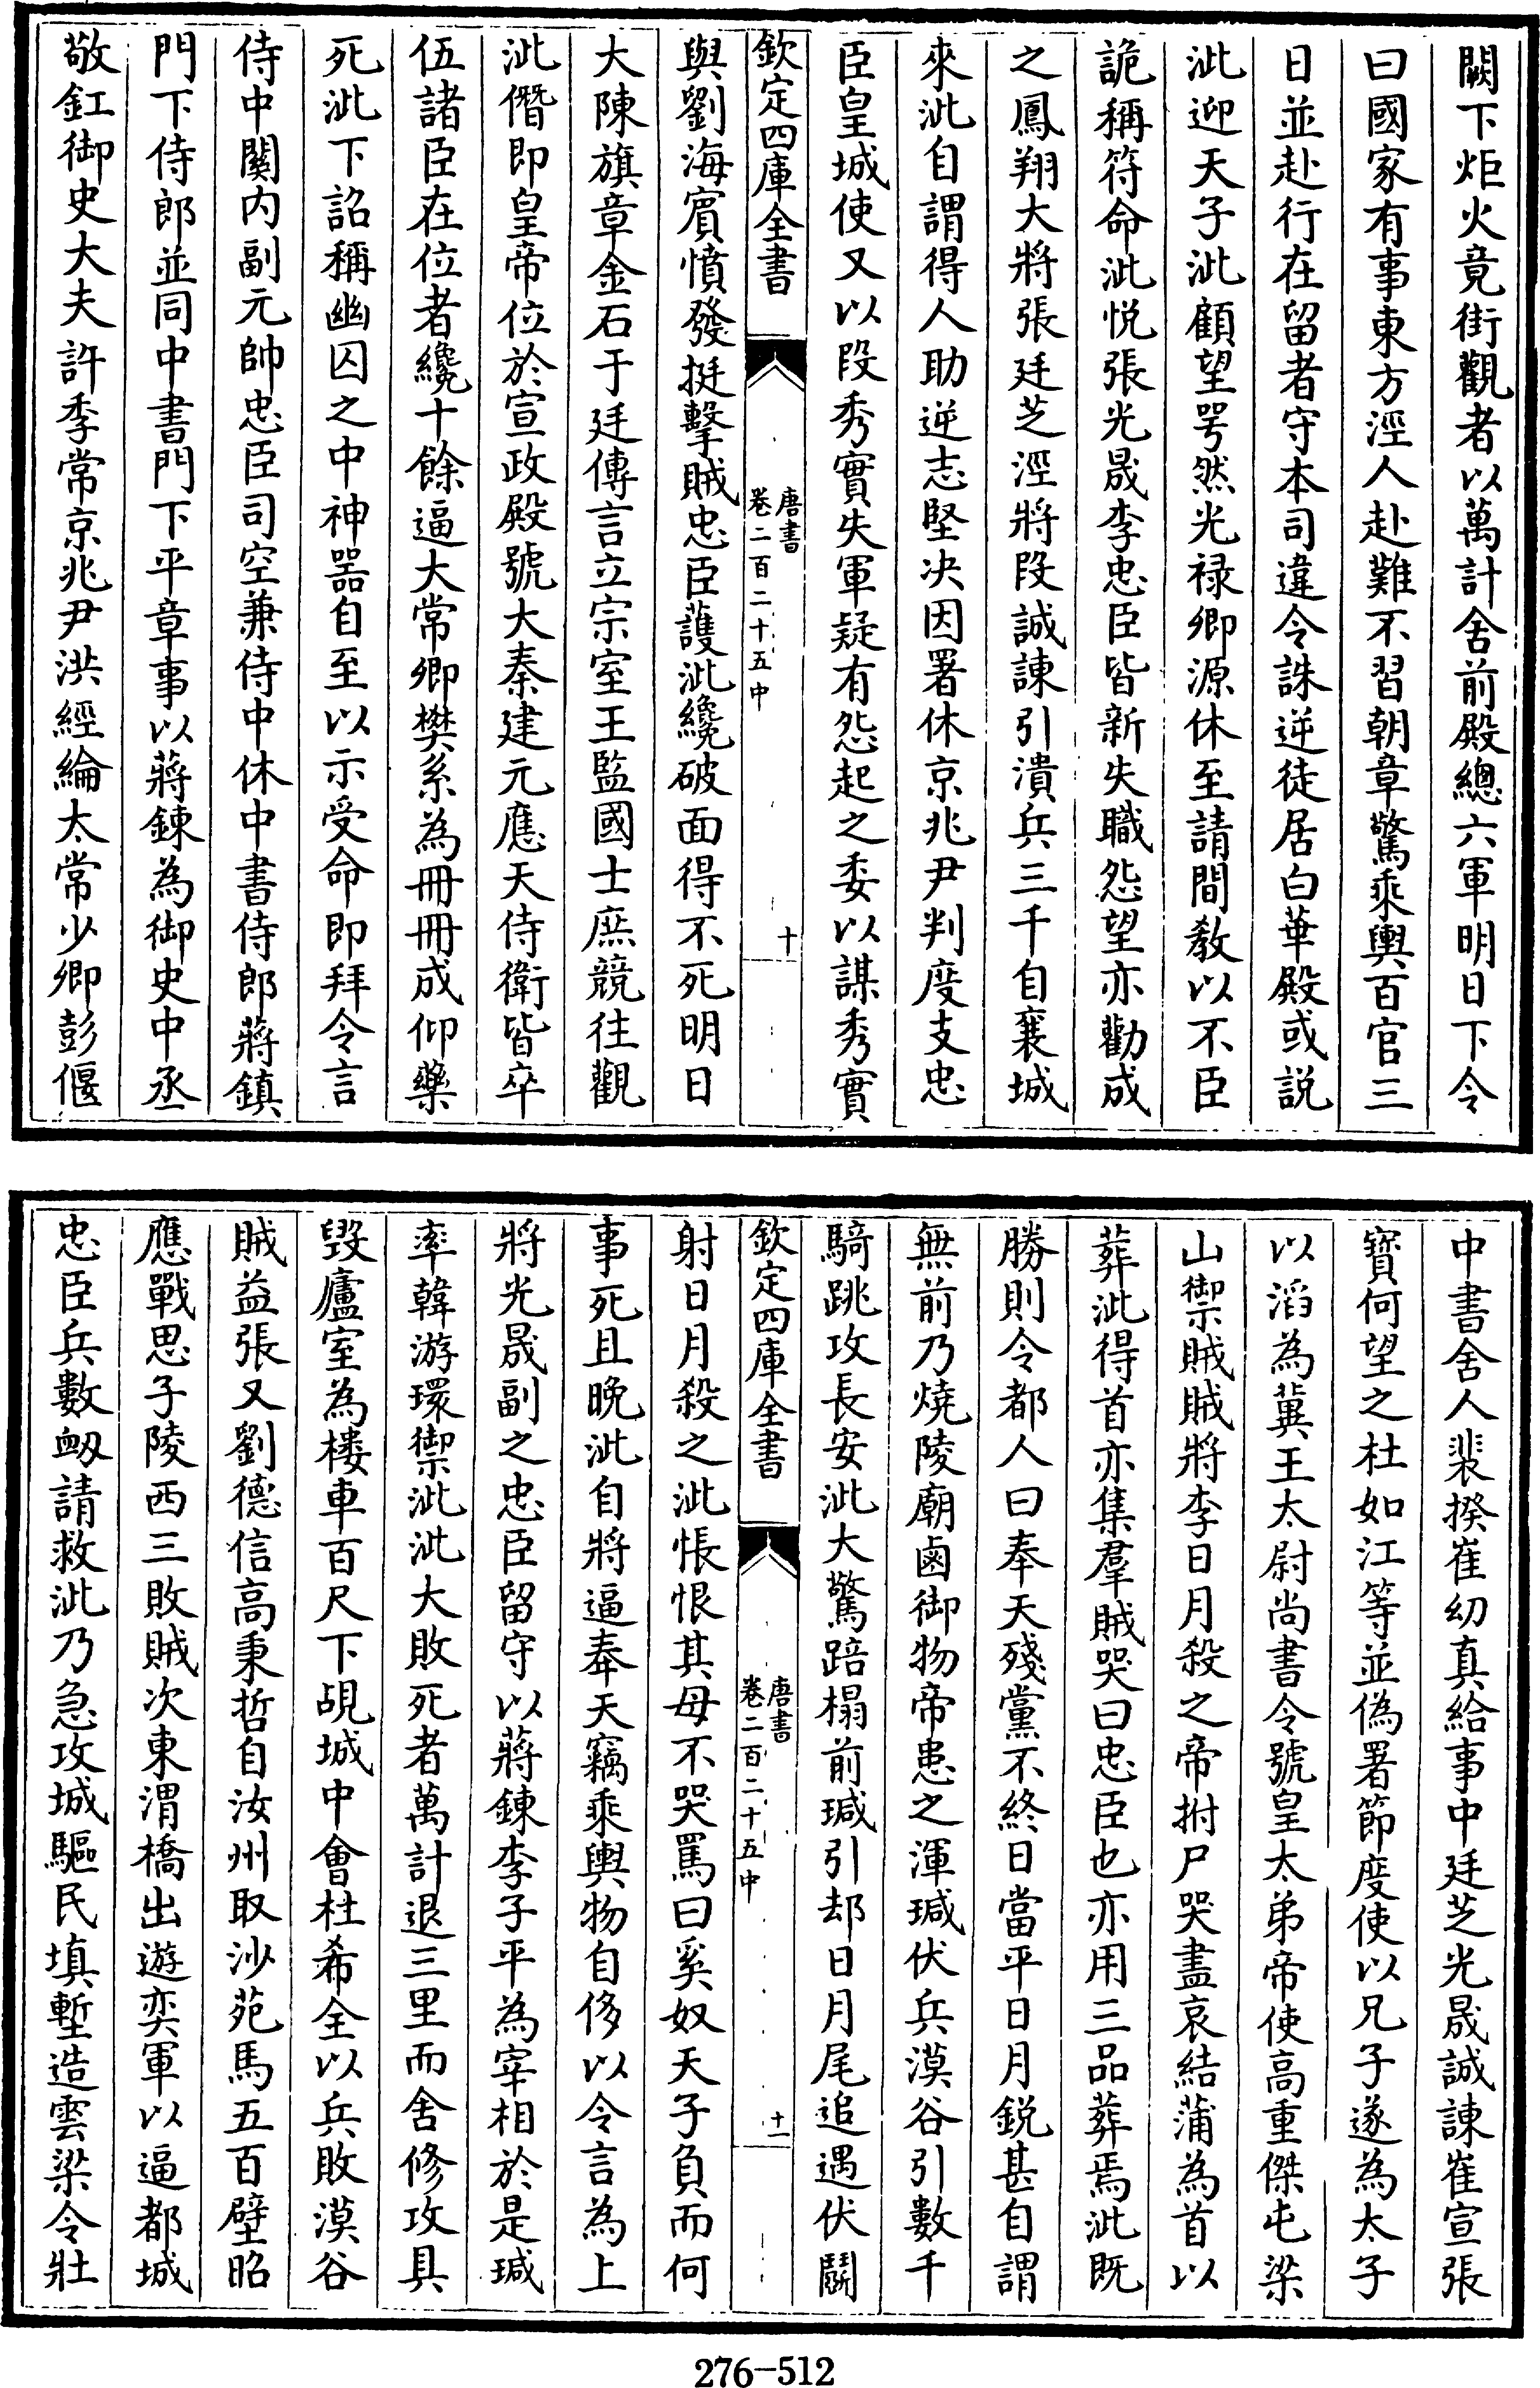 闕下炬火竟街觀者以萬計舍前殿總六軍明日下令
曰國家有事東方涇人赴難不習朝章驚乘輿百官三
日並赴行在留者守本司違令誅逆徒居白華殿或説
泚迎天子泚顧望咢然光禄卿源休至請間教以不臣
詭稱符命泚悦張光晟李忠臣皆新失職怨望亦勸成
之鳳翔大將張廷芝涇將段誠諫引潰兵三千自襄城
來泚自謂得人助逆志堅决因署休京兆尹判度支忠
臣皇城使又以段秀實失軍疑有怨起之委以謀秀實
欽定四庫全書
唐書
卷二百二十五中
十
與劉海賓憤發挺擊賊忠臣護泚纔破面得不死明日
大陳旗章金石于廷傳言立宗室王監國士庶競往觀
泚僭即皇帝位於宣政殿號大秦建元應天侍衛皆卒
伍諸臣在位者纔十餘逼大常卿樊系為冊冊成仰藥
死泚下詔稱幽囚之中神器自至以示受命即拜令言
侍中關内副元帥忠臣司空兼侍中休中書侍郎蔣鎮
門下侍郎並同中書門下平章事以蔣鍊為御史中丞
敬釭御史大夫許季常京兆尹洪經綸太常少卿彭偃
中書舍人裴揆崔幼真給事中廷芝光晟誠諫崔宣張
寶何望之杜如江等並偽署節度使以兄子遂為太子
以滔為冀王太尉尚書令號皇太弟帝使高重傑屯梁
山禦賊賊將李日月殺之帝拊尸哭盡哀結蒲為首以
葬泚得首亦集羣賊哭曰忠臣也亦用三品葬焉泚既
勝則令都人曰奉天殘黨不終日當平日月鋭甚自謂
無前乃燒陵廟鹵御物帝患之渾瑊伏兵漠谷引數千
騎跳攻長安泚大驚踣榻前瑊引却日月尾追遇伏鬭
欽定四庫全書
唐書
卷二百二十五中
十一
射日月殺之泚悵恨其母不哭罵曰奚奴天子負而何
事死且晚泚自將逼奉天竊乘輿物自侈以令言為上
將光晟副之忠臣留守以蔣鍊李子平為宰相於是瑊
率韓游環禦泚泚大敗死者萬計退三里而舍修攻具
毁廬室為樓車百尺下覘城中會杜希全以兵敗漠谷
賊益張又劉德信高秉哲自汝州取沙苑馬五百壁昭
應戰思子陵西三敗賊次東渭橋出遊奕軍以逼都城
忠臣兵數衂請救泚乃急攻城驅民填塹造雲梁令壯
276-512